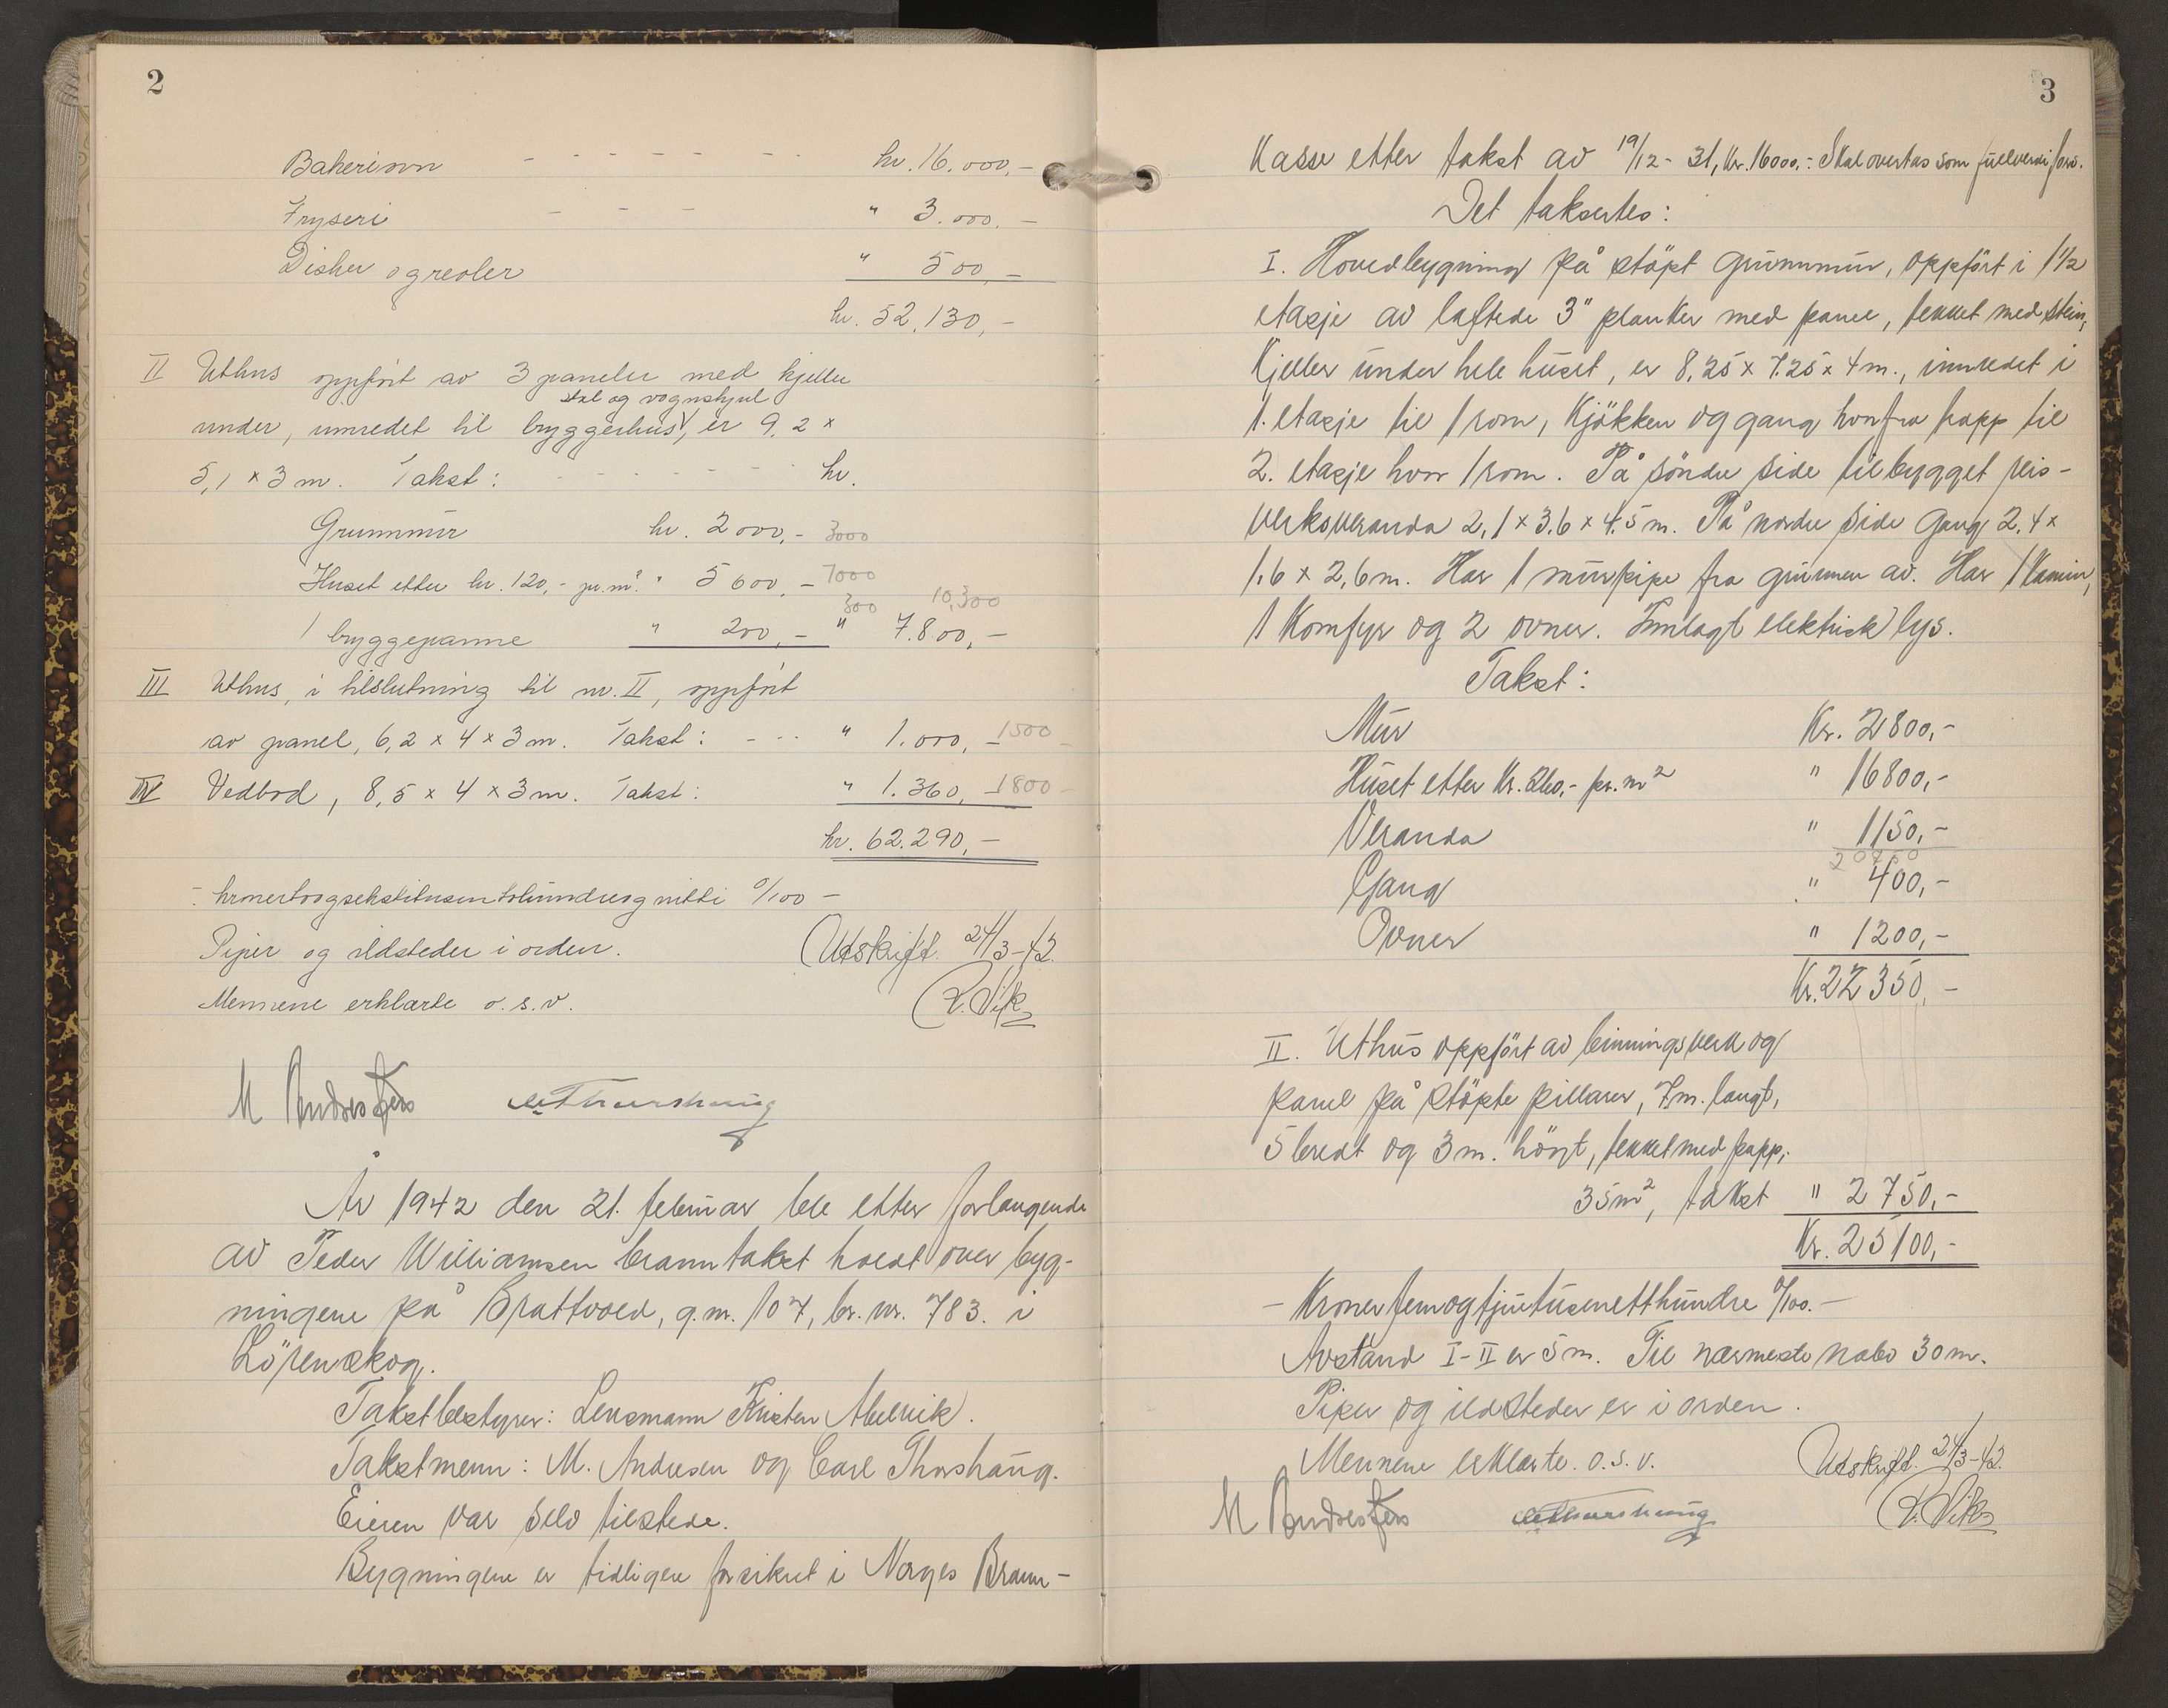 2
Bakeriovn - - - - - - - kr. 16.000,-
Fryseri - - - " 3.000,-
Disker og reoler " 500,-
kr. 52,130,-
II Uthus oppført av 3 paneler med kjeller
stal og vognskjul
under, innredet til bryggerhus, er 9,2 ×
5,1 × 3 m. Takst: - - - - - kr.
Grunnmur kr. 2000,- 3000
Huset etter kr. 120,- pr. m². " 5600,- 7000
300 10,300
1 bryggepanne " 200,- " 7.800,-
III Uthus, i tilslutning til nr. II, oppført
av panel, 6,2 × 4 × 3 m. Takst: - - - " 1.000,- 1500-
IV Vedbod, 8,5 × 4 × 3 m. Takst: " 1.360,- 1800-
kr. 62.290,-
- kronertoogsekstitusentohundreognitti 0/100 -
Piper og ildsteder i orden. Utskrift. 24/3-42.
Mennene erklærte o.s.v. K. Vik
M Andresen C. Thorshaug
År 1942 den 21. februar ble etter forlangende
av Peder Williamsen branntakst holdt over byg-
ningene på Brattvold, g.nr. 107, br. nr. 783. i
Lörenskog.
Takstbestyrer: Lensmann Kristen Abelvik.
Takstmenn: M. Andresen og Carl Thorshaug.
Eieren var selv tilstede.
Bygningene er tidligere forsikret i Norges Brann-
3
Kasse etter takst av 19/12-31, Kr. 16000,- Skal overtas som fullverdi fors.
Det taksertes:
I. Hovedbygning på stöpt grunnmur, oppfört i 1 1/2
etasje av laftede 3" planker med panel, tekket med stein,
Kjeller under hele huset, er 8,25 × 7.25 × 4 m., innredet i
1. etasje til 1 rom, Kjökken og gang hvorfra trapp til
2. etasje hvor 1 rom. På söndre side tilbygget reis-
verksveranda 2,1 × 3,6 × 4.5 m. På nordre side Gang 2,4 ×
1,6 × 2,6 m. Har 1 murpipe fra grunnen av. Har 1 Kamin,
1 Komfyr og 2 ovner. Innlagt elektrisk lys.
Takst:
Mur Kr. 2800,-
Huset etter Kr. 280,- pr. m² " 16800,-
Veranda " 1150,-
20750
Gang " 400,-
Ovner " 1200,-
Kr. 22350,-
II. Uthus oppfört av binningsverk og
panel på stöpte pillarer, 7 m. langt,
5 bredt og 3 m. högt, tekket med papp,
35 m², takst " 2750,-
Kr. 25100,-
- Kroner femogtjuetusenetthundre 0/100.-
Avstand I-II er 5 m. Til nærmeste nabo 30 m.
Piper og ildsteder er i orden.
Mennene erklærte. o.s.v. Utskrift. 24/3-42.
M Andresen C. Thorshaug K. Vik